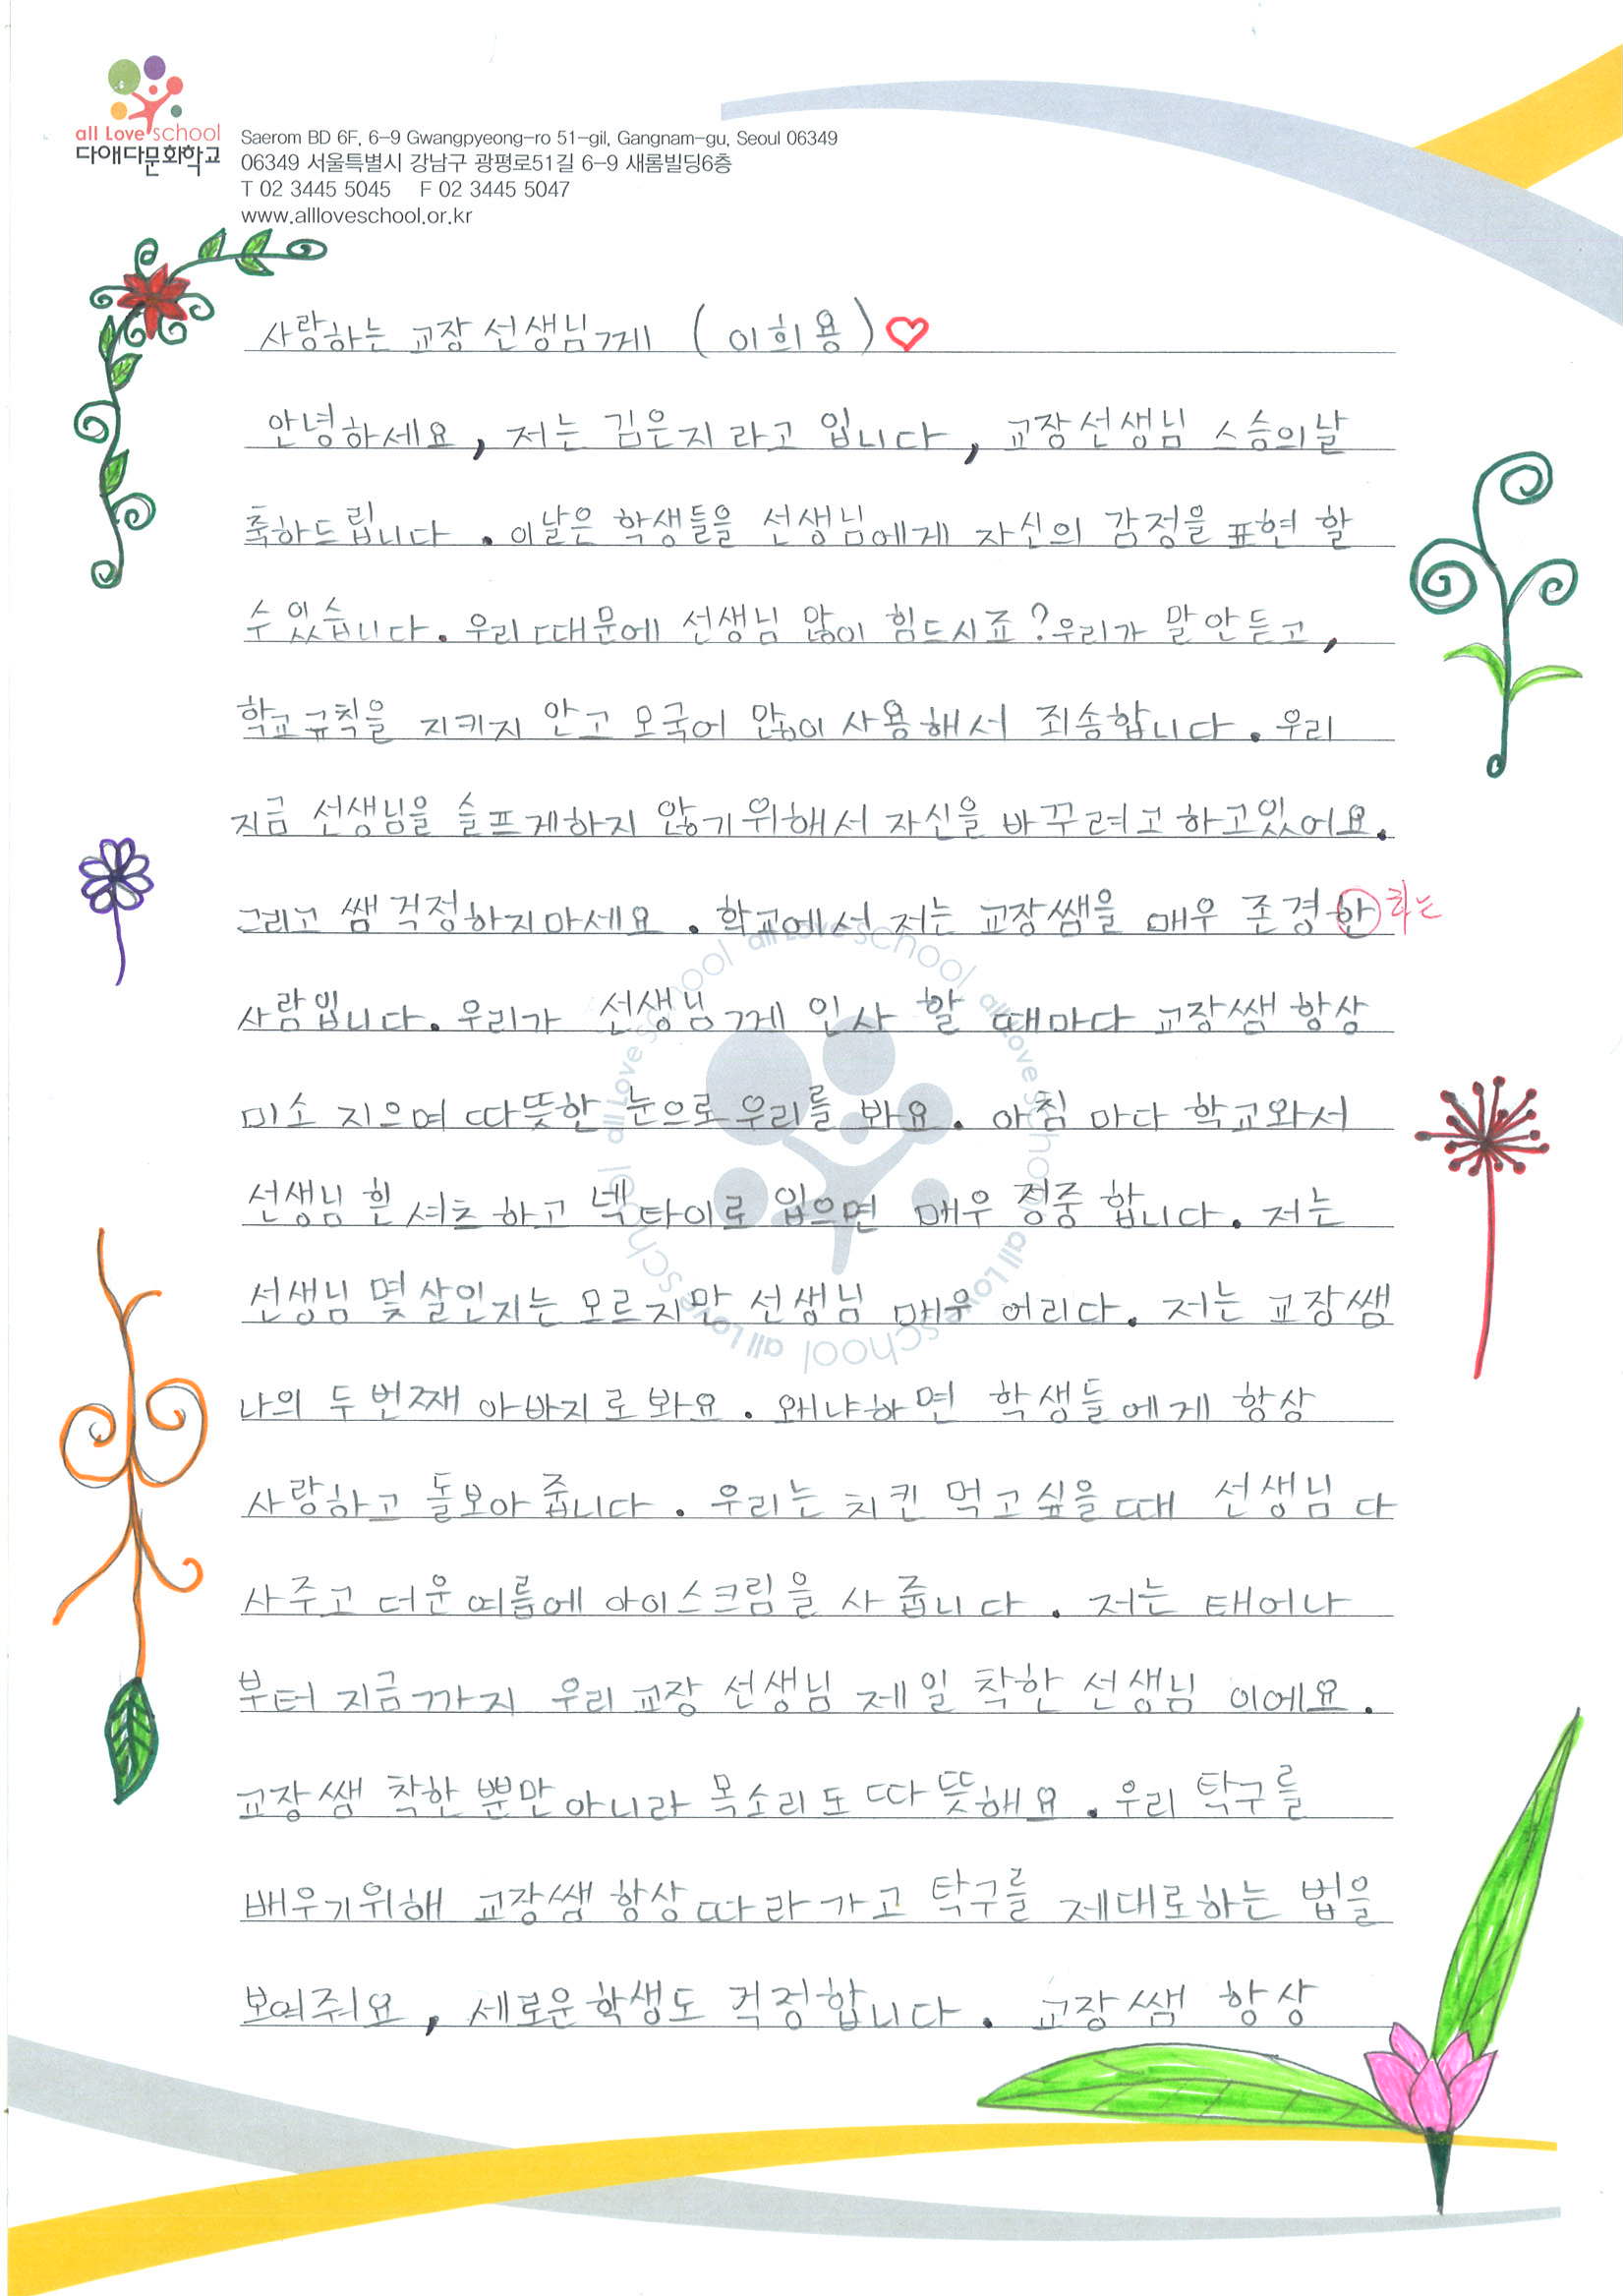 all Love school
다애다문화학교
Saerom BD 6F, 6-9 Gwangpyeong-ro 51-gil, Gangnam-gu, Seoul 06349
06349 서울특별시 강남구 광평로51길 6-9 새롬빌딩6층
T 02 3445 5045 F 02 3445 5047
www.allloveschool.or.kr
사랑하는 교장 선생님께 (이희용)♡
안녕하세요, 저는 김은지라고 입니다, 교장선생님 스승의날
축하드립니다. 이날은 학생들을 선생님에게 자신의 감정을 표현 할
수 있습니다. 우리 때문에 선생님 많이 힘드시죠? 우리가 말 안 듣고,
학교 규칙을 지키지 안고 모국어 많이 사용해서 죄송합니다. 우리
지금 선생님을 슬프게하지 않기위해서 자신을 바꾸려고 하고있어요.
그리고 쌤 걱정하지마세요. 학교에서 저는 교장쌤을 매우 존경한 하는
사람입니다. 우리가 선생님께 인사 할 때마다 교장쌤 항상
미소 지으며 따뜻한 눈으로 우리를 봐요. 아침 마다 학교와서
선생님 흰 셔츠 하고 넥타이로 입으면 매우 정중 합니다. 저는
선생님 몇 살인지는 모르지만 선생님 매우 어리다. 저는 교장쌤
나의 두 번째 아바지로 봐요. 왜냐하면 학생들에게 항상
사랑하고 돌보아 줍니다. 우리는 치킨 먹고싶을때 선생님 다
사주고 더운 여름에 아이스크림을 사 줍니다. 저는 태어나
부터 지금까지 우리 교장 선생님 제일 착한 선생님 이에요.
교장쌤 착한 뿐만 아니라 목소리도 따뜻해요. 우리 탁구를
배우기위해 교장쌤 항상 따라가고 탁구를 제대로하는 법을
보여줘요, 새로운 학생도 걱정합니다. 교장쌤 항상
all Love school all Love school all Love school all Love school